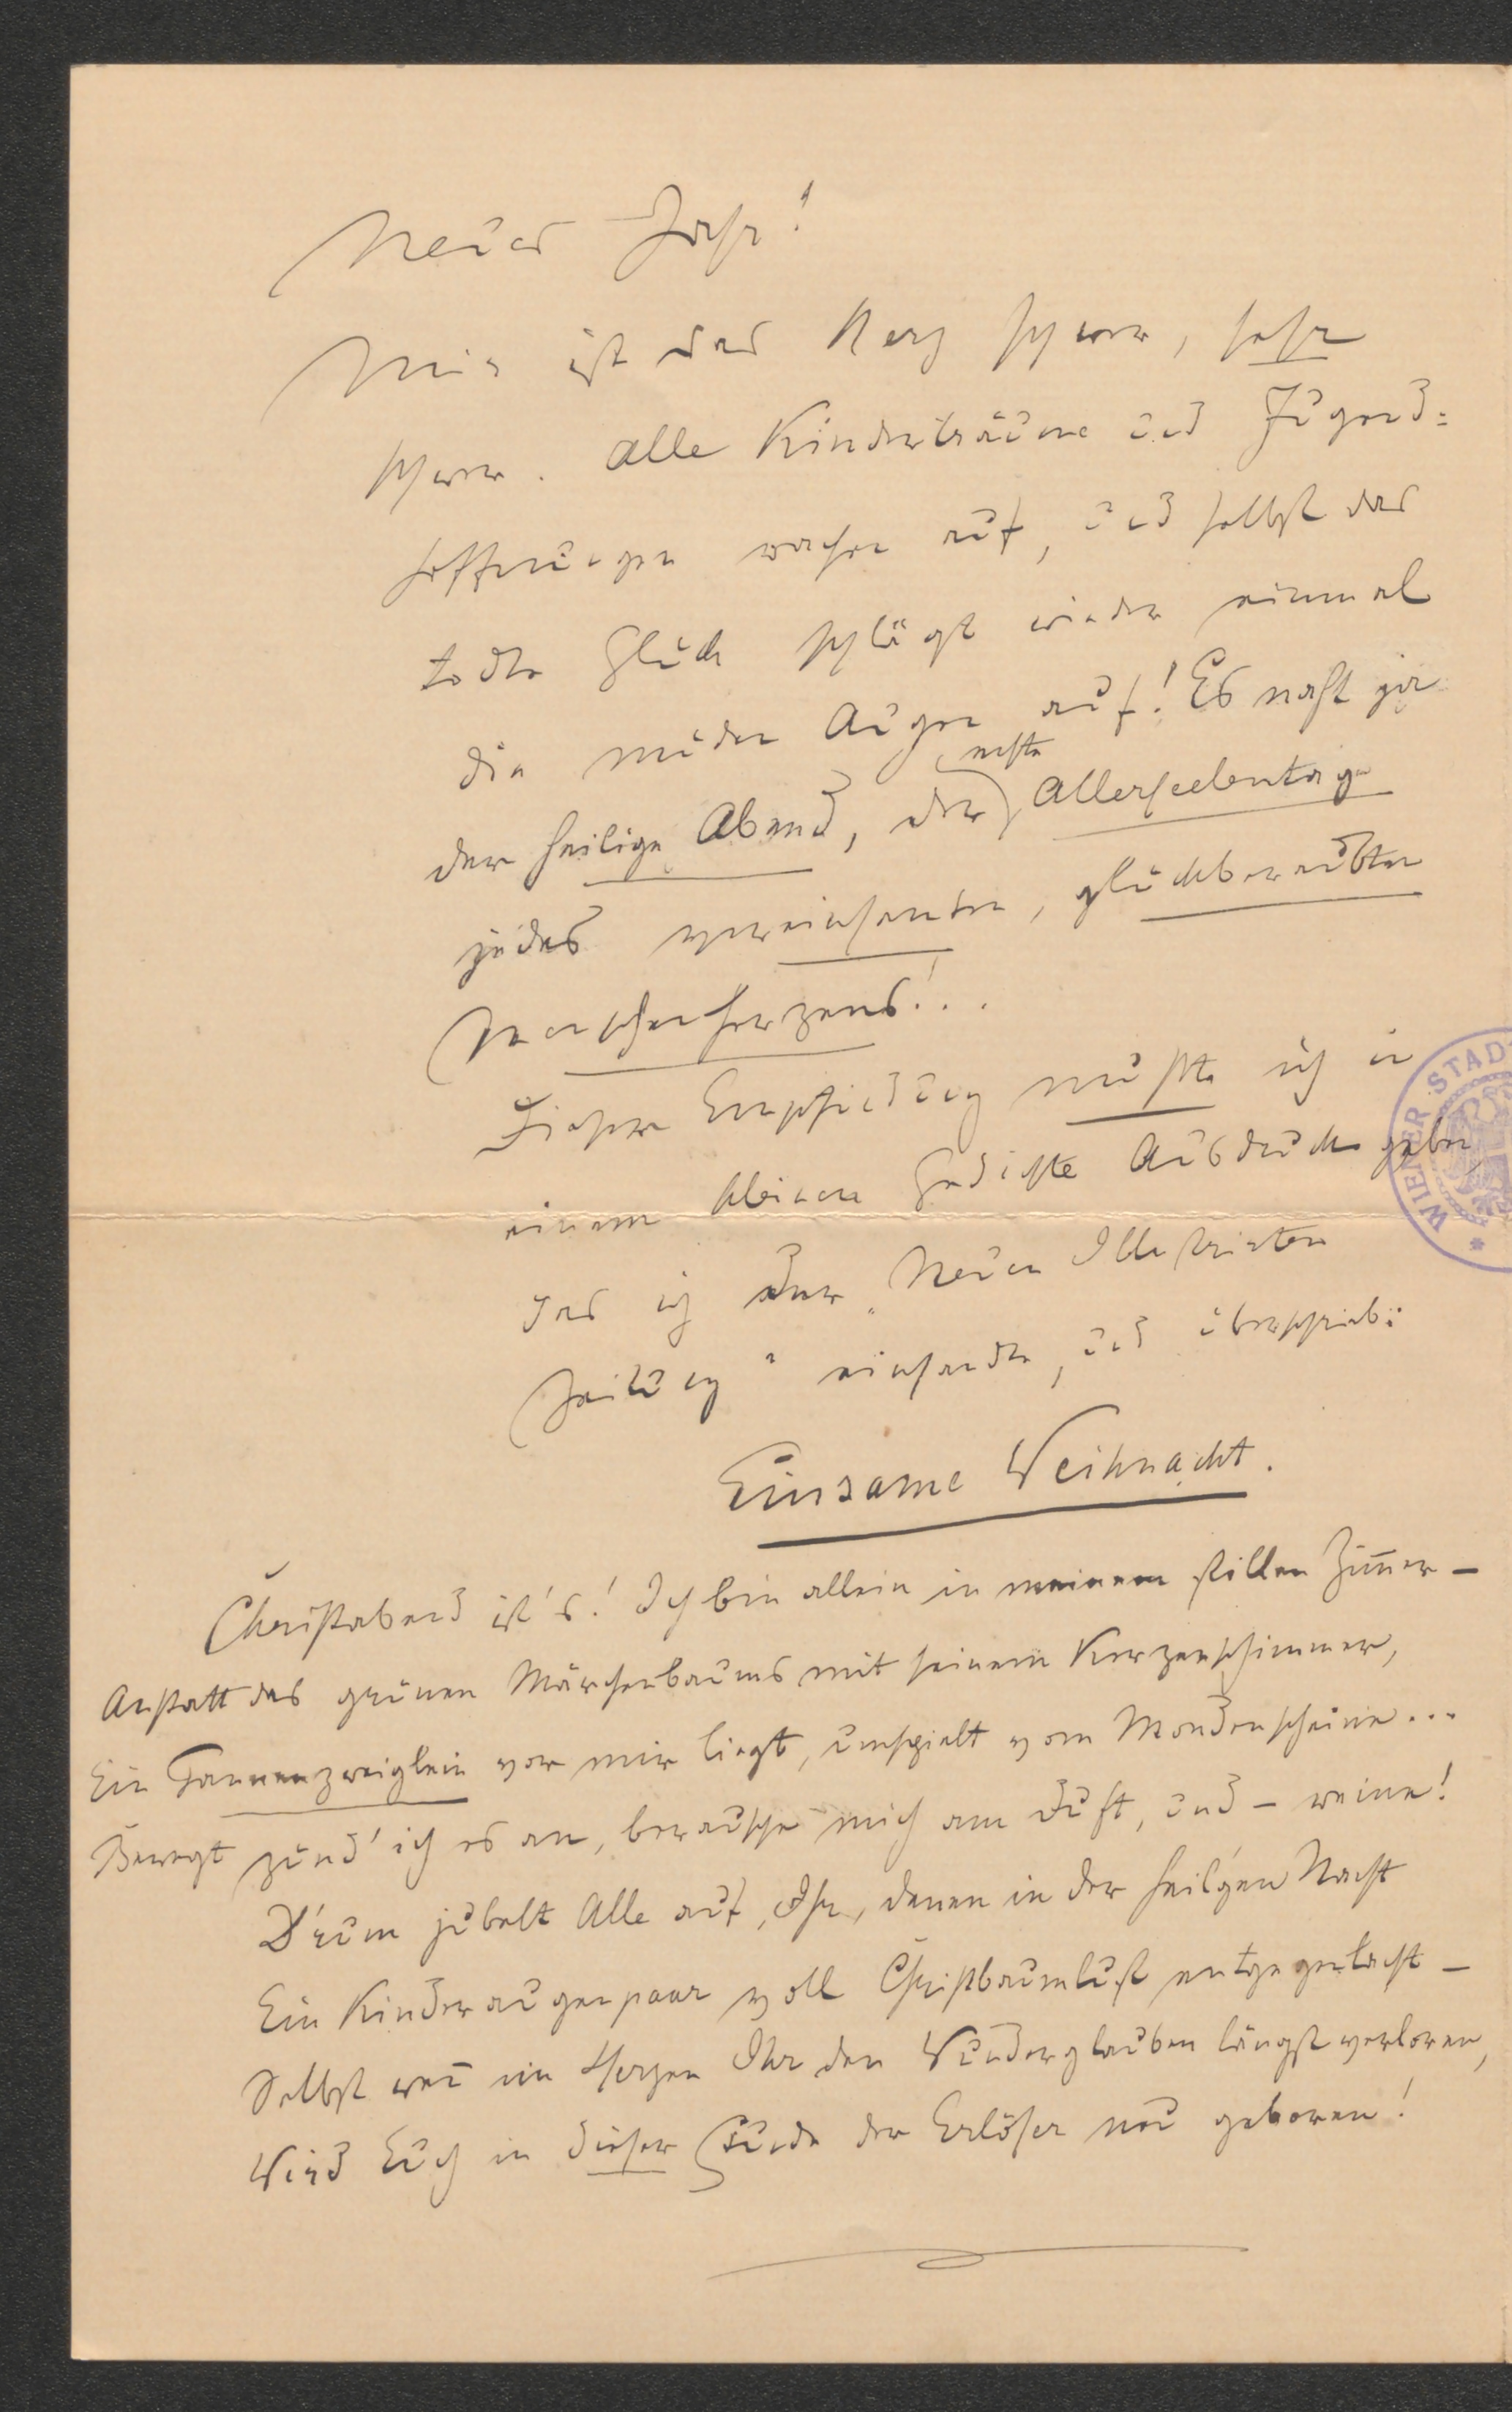 Neues Jahr!
Mir ist das Herz schwer, sehr
schwer. Alle Kinderträume und Jugend=
hoffnungen wachen auf, und selbst das
todte Glück schlägt wieder einmal
die müden Augen auf! Es naht ja
der heilige Abend, der echte Allerseelentag
jedes vereinsamten, glückberaubten
Menschenherzens!..
Dieser Empfindung mußte ich in
einem kleinen Gedichte Ausdruck geben,
das ich der „Neuen Illustrirten
Zeitung" einsandte, und überschrieb:
Einsame Weihnacht.
Christabend ist's! Ich bin allein in meinem stillen Zimmer –
Anstatt des grünen Märchenbaums mit seinem Kerzenschimmer,
Ein Tannenzweiglein vor mir liegt, umspielt vom Mondenscheine...
Bewegt zünd' ich es an, berausche mich am Duft, und – weine!
D'rum jubelt Alle auf, Ihr, denen in der heil'gen Nacht
Ein Kinderaugenpaar voll Christbaumlust entgegenlacht –
Selbst wen̄ im Herzen Ihr den Wunderglauben längst verloren,
Wird Euch in dieser Stunde der Erlöser neu geboren!
WIENER STAD